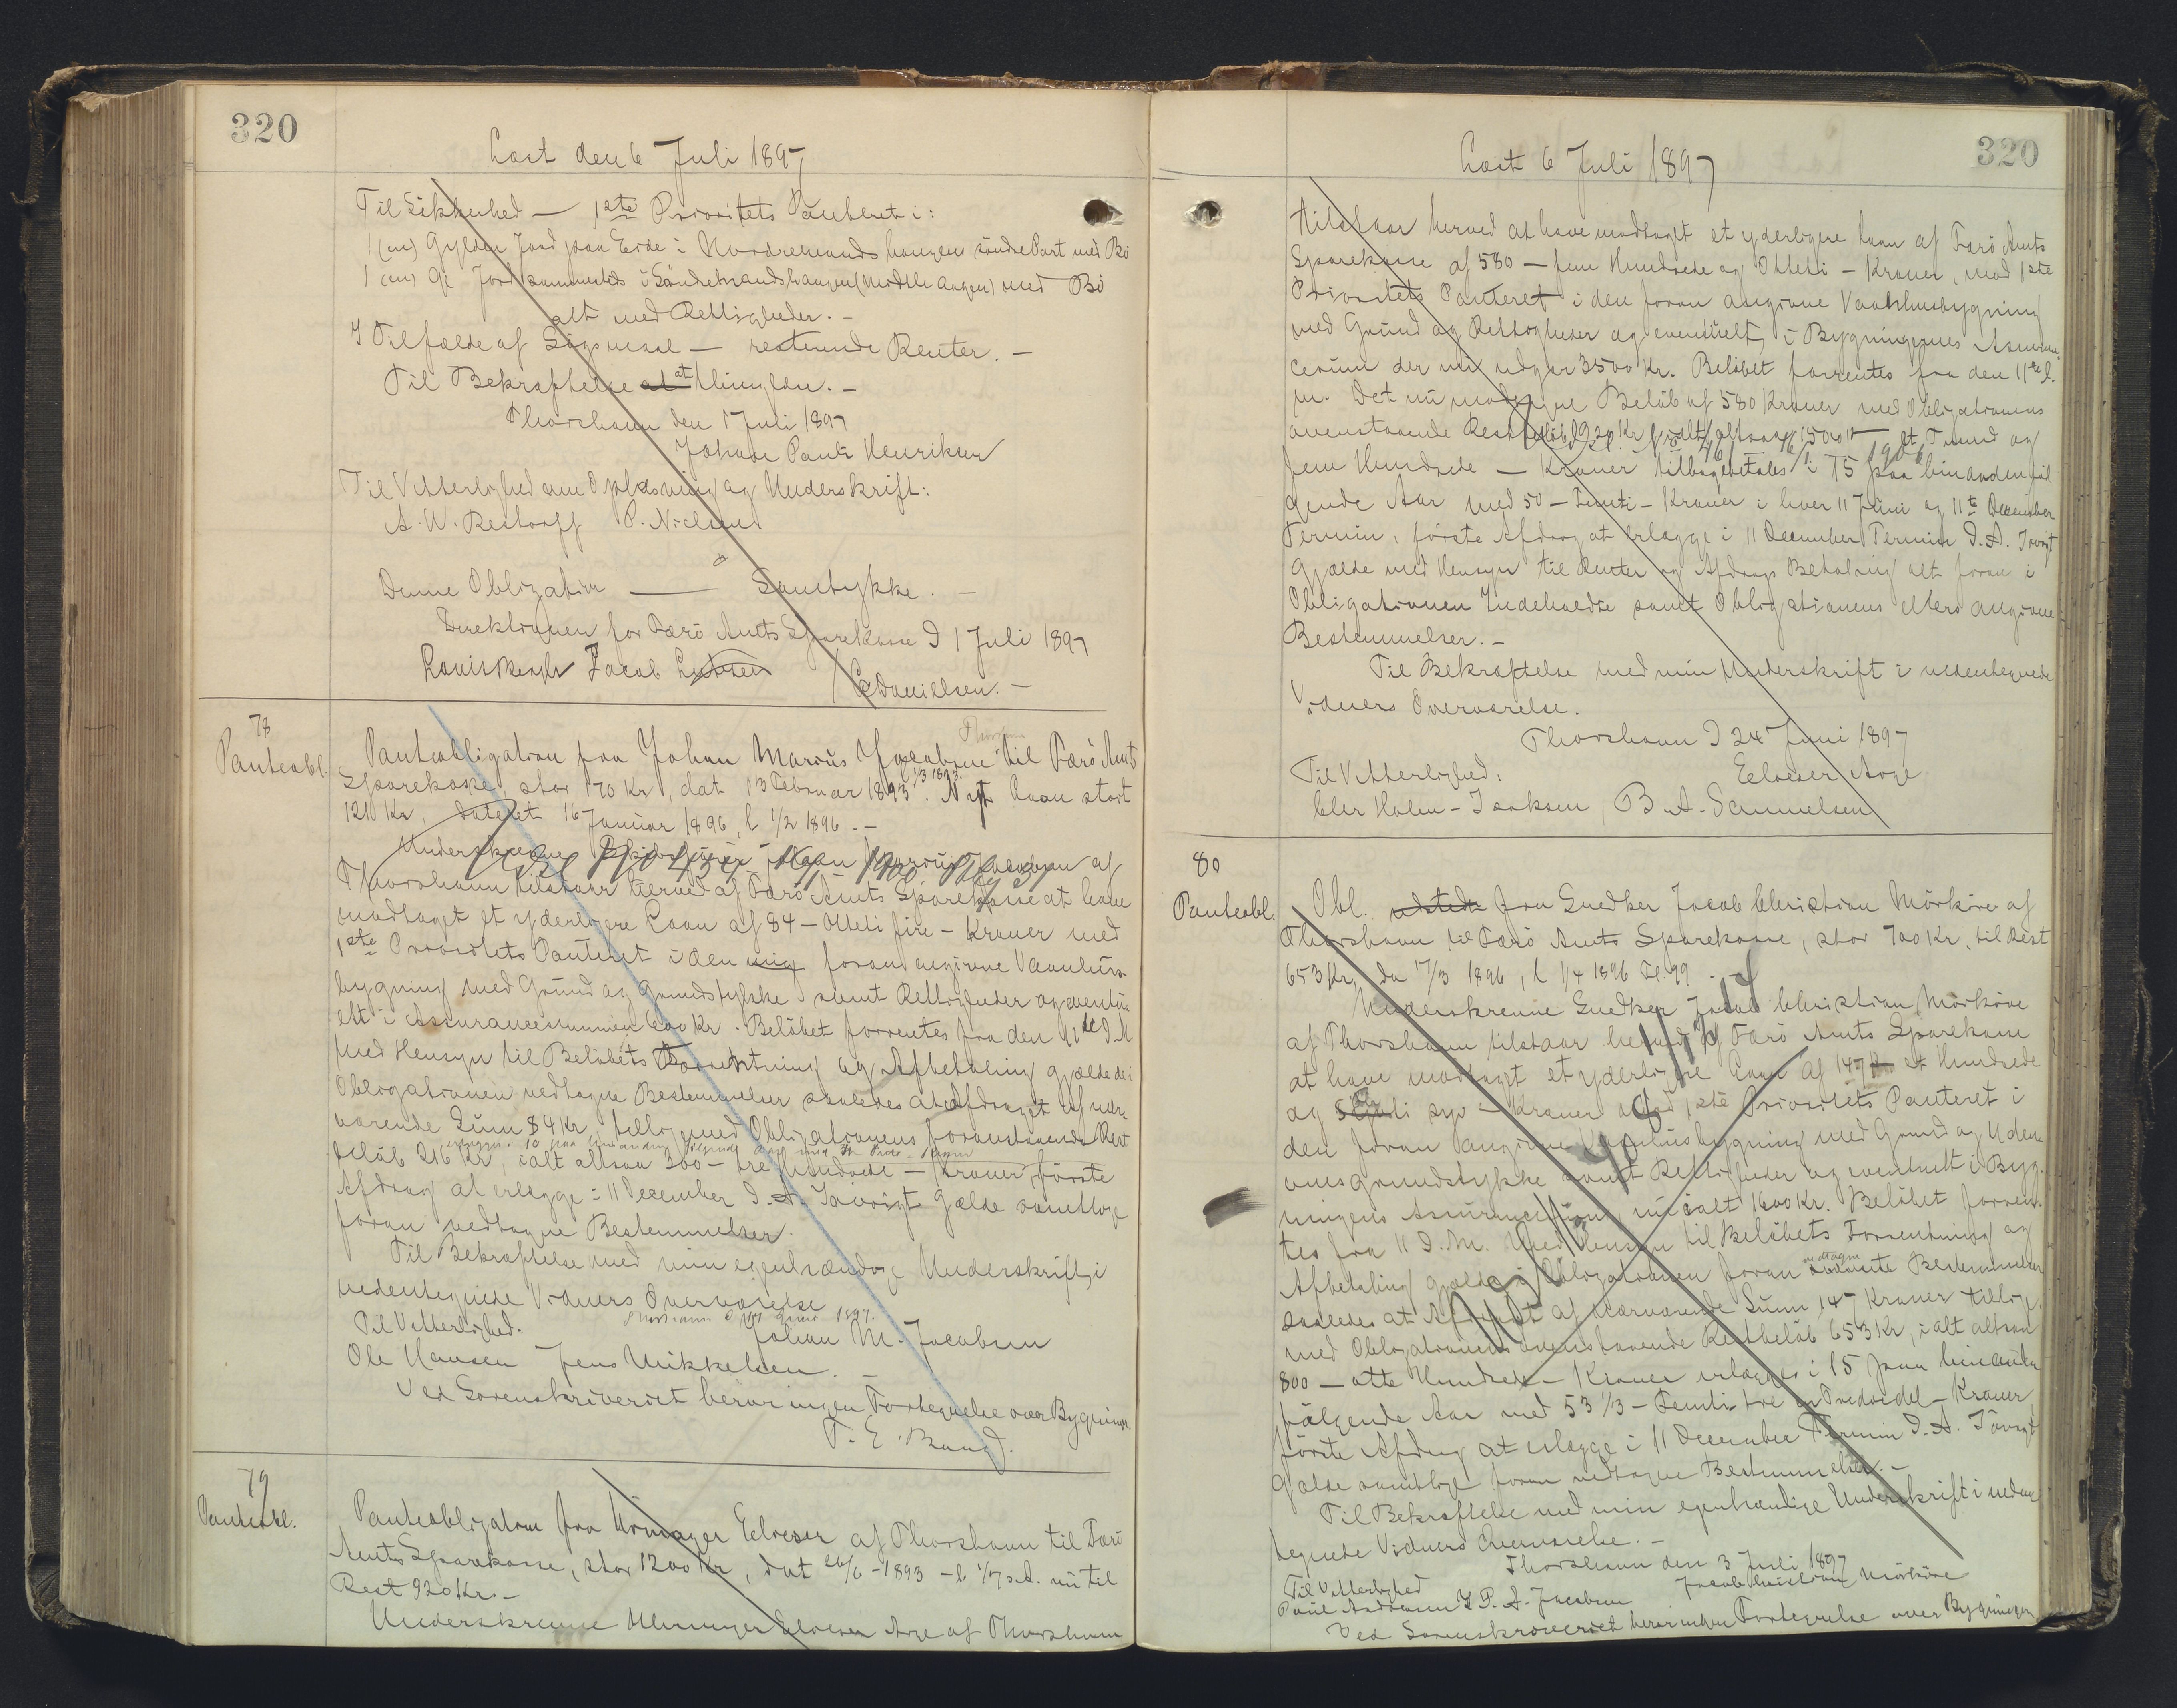 320
Læst den 6 Juli 1897
Til Sikkerhed — 1ste Prioritets Panteret i:
1 (en) Gylden Jord paa Eide i søndre Part med Bö
1 (en) Gl Jord sammesteds i med Bö
alt med Rettigheder. -
I Tilfælde af Søgsmaal — resterende Renter. -
Til Bekræftelse at
Thorshavn den 1 Juli 1897
Johan Paul Henriksen
Til Vitterlighed om Oplæsning og Underskrift:
A. W. Restorff P. Nielsen
Denne Obligation — Samtykke. -
Direktionen for Færö Amts Sparekasse D 1 Juli 1897
Louis Bergh Jacob Lützen / C Danielsen. -
78
Panteobl.
Panteobligation fra Johan Marius Jacobsen Thorshavn til Færö Amts
Sparekasse, stor 170 Kr, dat 13 Februar 1893 1/3 1893. Nyt Laan stort
1210 Kr, dateret 16 Januar 1896, l 1/2 1896. -
Underskrevne Johan Marius Jacobsen af
Thorshavn tilstaar herved af Færö Amts Sparekasse at have
modtaget et yderligere Laan af 84 - Otteti fire - Kroner med
1ste Prioritets Panteret i den mig foran angivne Vaanhus-
bygning med Grund og Grundstykke samt Rettigheder og eventu-
elt i Assurancesummen 600 Kr. Beløbet forrentes fra den 11te D. M
Med Hensyn til Beløbets Forrentning og Afbetaling gjælde de i
Obligationen vedtagne Bestemmelser saaledes at Afdraget af nær-
værende Sum 84 Kr, tillig med Obligationens foranstaaende Rest
erlægges i 10 paa hinanden følgende Aar med
beløb 216 Kr, ialt altsaa 300 - tre Hundrede - Kroner, første
Afdrag at erlægge i 11 December D. A. Iøvrigt Gælde samtlige
foran vedtagne Bestemmelser.
Til Bekræftelse med min egenhændige Underskrift i
nedentegnede Vidners Overværelse
Thorshavn D Juni 1897.
Til Vitterlighed. Johan M. Jacobsen
Ole Hansen Jens Mikkelsen. -
Ved Sorenskriveriet beror ingen Fortegnelse over Bygninger.
T. E. Bang.
79
Panteobl.
Panteobligation fra Urmager Eeloeser af Thorshavn til Færö
Amts Sparekasse, stor 1200 Kr, dat 26/6 - 1893 - l. 1/7 s. A. nu til
Rest 920 Kr. -
Underskrevne Urmager Eeloeser Arge af Thorshavn
320
Læst 6 Juli 1897
tilstaar herved at have modtaget et yderligere Laan af Færö Amts
Sparekasse af 580 - fem Hundrede og Otteti - Kroner, mod 1ste
Prioritets Panteret i den foran angivne Vaanhusbygning
med Grund og Rettigheder og eventuelt i Bygningernes Assuran-
cesum der nu udgør 3500 Kr. Beløbet forrentes fra den 11te d.
m. Det nu modtagne Beløb af 580 Kroner med Obligationens
ovenstaaende Restbeløb 920 Kr ialt altsaa 1500 Kr - et Tusind og
fem Hundrede - Kroner tilbagebetales i 15 paa hinanden føl-
gende Aar med 50 - Femti - Kroner i hver 11 Juni og 11te December
Termin, første Afdrag at erlægge i 11 December Termin D. A. Iøvrigt
Gjælde med Hensyn til Renter og Afdrags Betaling alt foran i
Obligationen Indeholdte samt Obligationens ellers angivne
Bestemmelser. -
Til Bekræftelse med min Underskrift i nedentegnede
Vidners Overværelse.
Thorshavn D 24 Juni 1897
Til Vitterlighed: Eeloeser Arge
Holm-Isaksen, B. A. Samuelsen
80
Panteobl.
Obl. udstedt fra Snedker Jacob Christian Mörköre af
Thorshavn til Færö Amts Sparekasse, stor 700 Kr, til Rest
653 Kr, da 17/3 1896, l 1/4 1896 Fl. 99. -
Underskrevne Snedker Jacob Christian Mörköre
af Thorshavn tilstaar herved af Færö Amts Sparekasse
at have modtaget et yderligere Laan af 147 Kr et Hundrede
og syv - Kroner mod 1ste Prioritets Panteret i
den foran angivne Vaanhusbygning med Grund og Uden-
omsgrundstykke samt Rettigheder og eventuelt i Byg-
ningens Assurancesum nu ialt 1600 Kr. Beløbet forren-
tes fra 11 D. M. Med Hensyn til Beløbets Forrentning og
Afbetaling gjælde i Obligationen foran vedtagne Bestemmelser
saaledes at Afdraget af nærværende Sum 147 Kroner tillige
med Obligationens ovenstaaende Restbeløb 653 Kr, i alt altsaa
800 - otte Hundrede - Kroner erlægges i 15 paa hinanden
følgende Aar med 53 1/3 - Femti tre en Trediedel - Kroner
første Afdrag at erlægge i 11 December Termin D. A. Iøvrigt
Gælde samtlige foran vedtagne Bestemmelser. -
Til Bekræftelse med min egenhændige Underskrift i neden-
tegnede Vidners Overværelse. -
Thorshavn den 3 Juli 1897
Til Vitterlighed Jacob Christian Mörköre
Poul Andreasen J. P. A. Jacobsen
Ved Sorenskriveriet beror ingen Fortegnelse over Bygningen